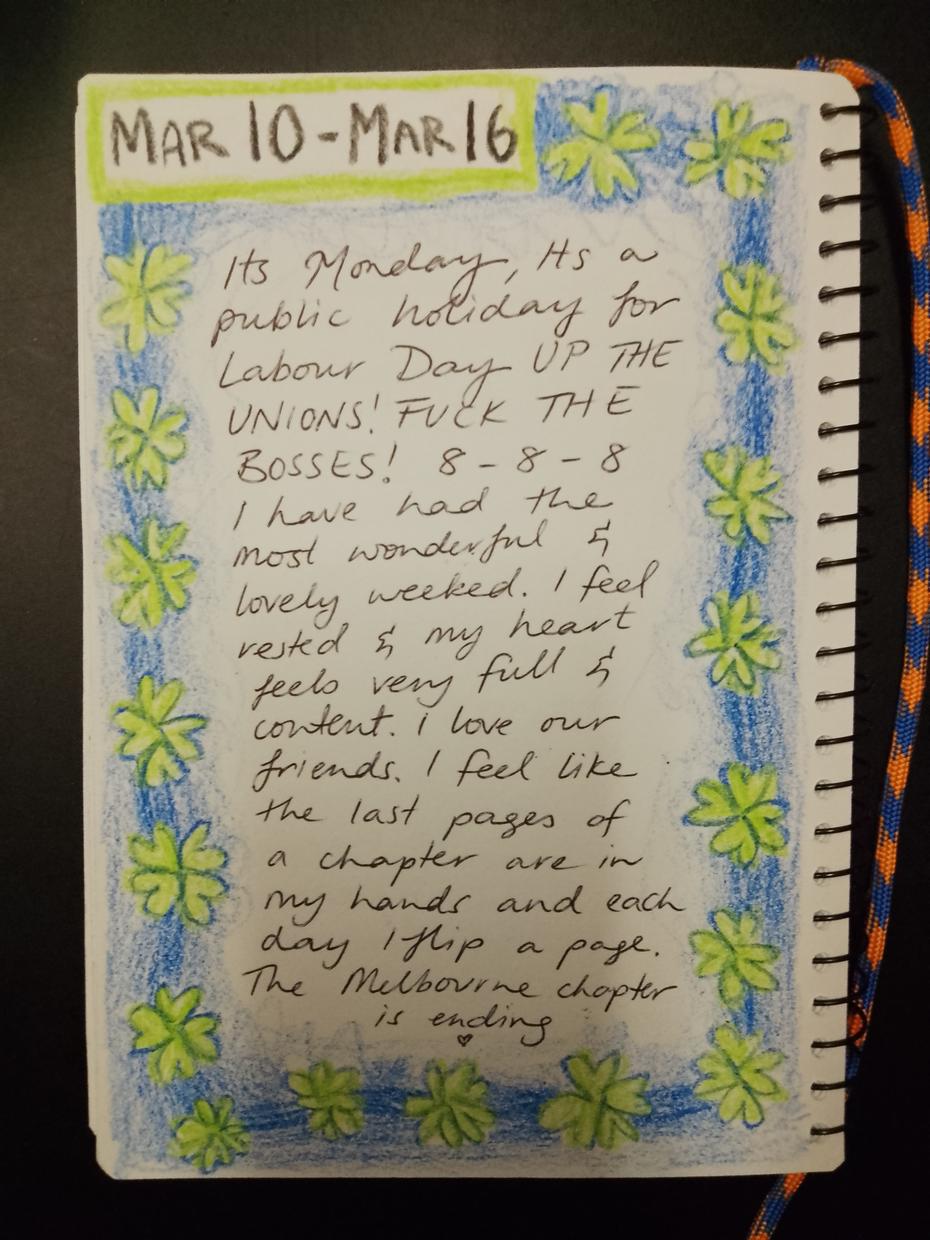 MAR 10 - MAR 16
Its Monday, Its a
public holiday for
Labour Day UP THE
UNIONS! FUCK THE
BOSSES! 8 - 8 - 8
I have had the
most wonderful &
lovely weeked. I feel
rested & my heart
feels very full &
content. I love our
friends. I feel like
the last pages of
a chapter are in
my hands and each
day I flip a page.
The Melbourne chapter
is ending
♡